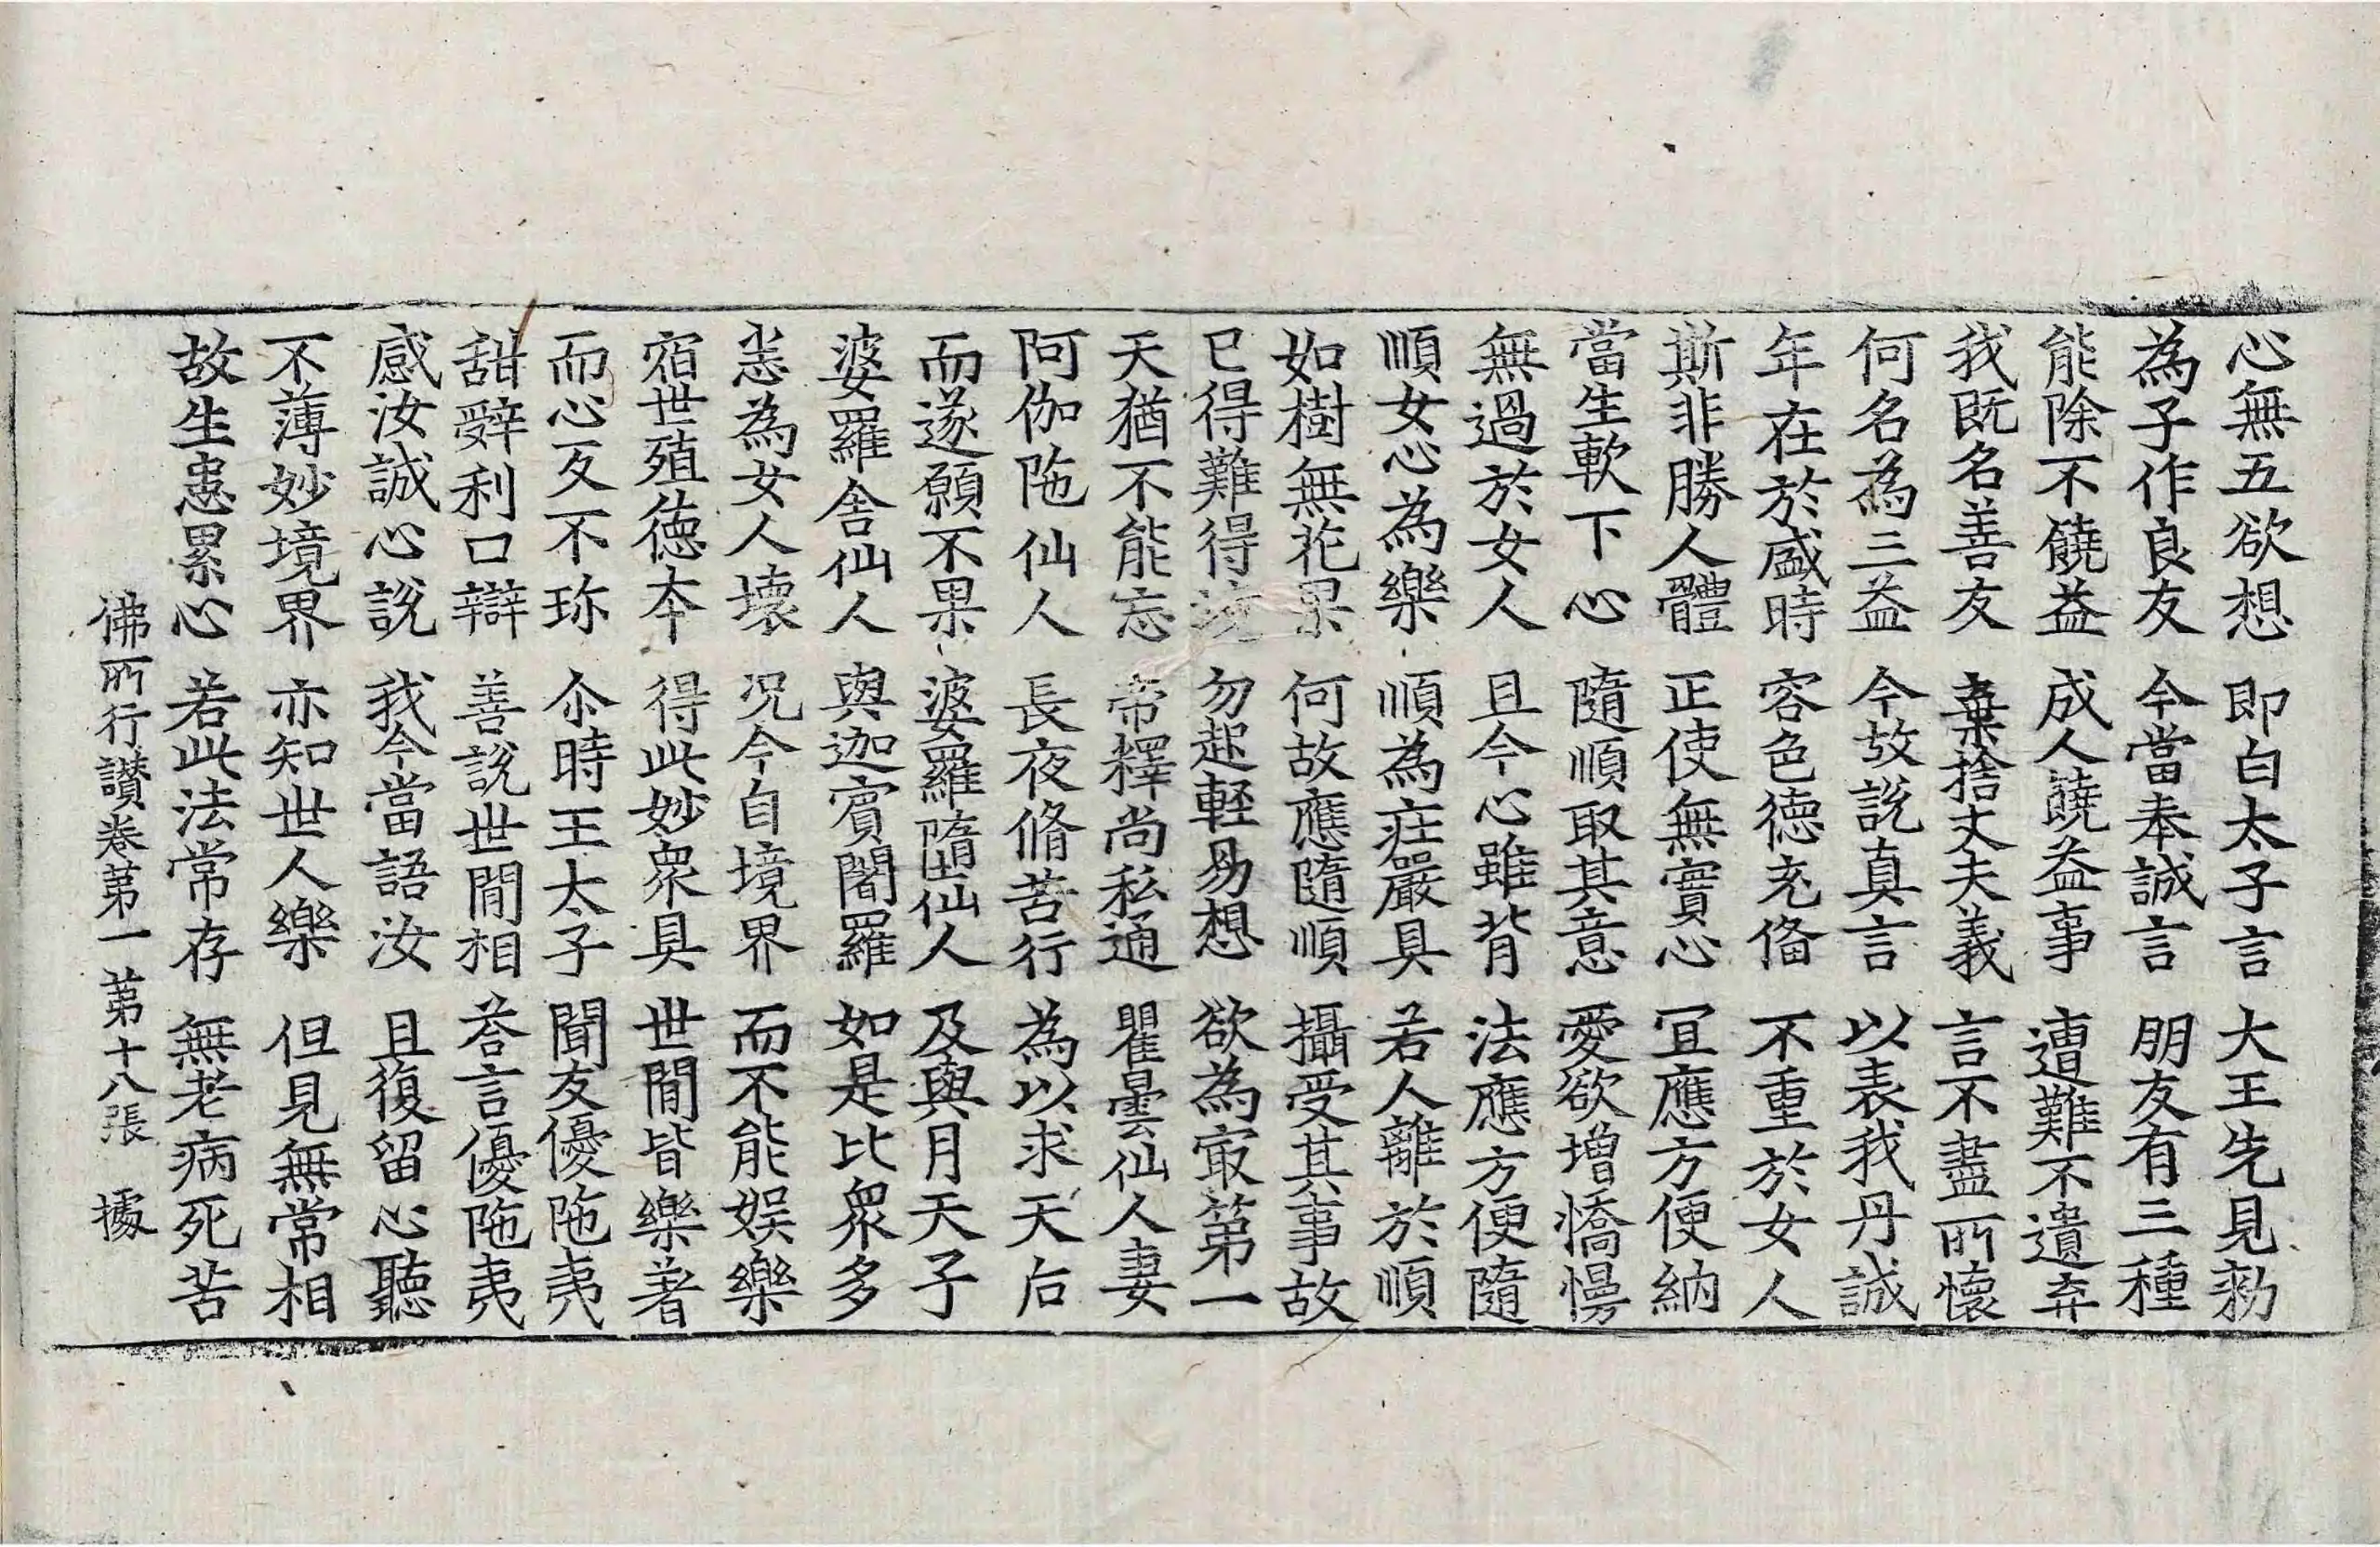 心無五欲想 即白太子言 大王先見勑
為子作良友 今當奉誠言 朋友有三種
能除不饒益 成人饒益事 遭難不遺弃
我既名善友 棄捨丈夫義 言不盡所懷
何名為三益 今故說真言 以表我丹誠
年在於盛時 容色德充俻 不重於女人
斯非勝人體 正使無實心 冝應方便納
當生軟下心 隨順取其意 愛欲增憍慢
無過於女人 且今心雖背 法應方便隨
順女心為樂 順為疘嚴具 若人離於順
如樹無花果 何故應隨順 攝受其事故
已得難得境 勿起輕易想 欲為㝡第一
天猶不能忘 帝釋尚私通 瞿曇仙人妻
阿伽陁仙人 長夜脩苦行 為以求天后
而遂願不果 婆羅墮仙人 及與月天子
婆羅舍仙人 與迦賓闍羅 如是比衆多
悉為女人壞 况今自境界 而不能娛樂
宿世殖德本 得此妙衆具 世間皆樂著
而心反不珎 尒時王太子 聞友優陁夷
甜辭利口辯 善說世間相 荅言優陁夷
感汝誠心說 我今當語汝 且復留心聽
不薄妙境界 亦知世人樂 但見無常相
故生患累心 若此法常存 無老病死苦
佛所行讃卷第一 第十八張 據